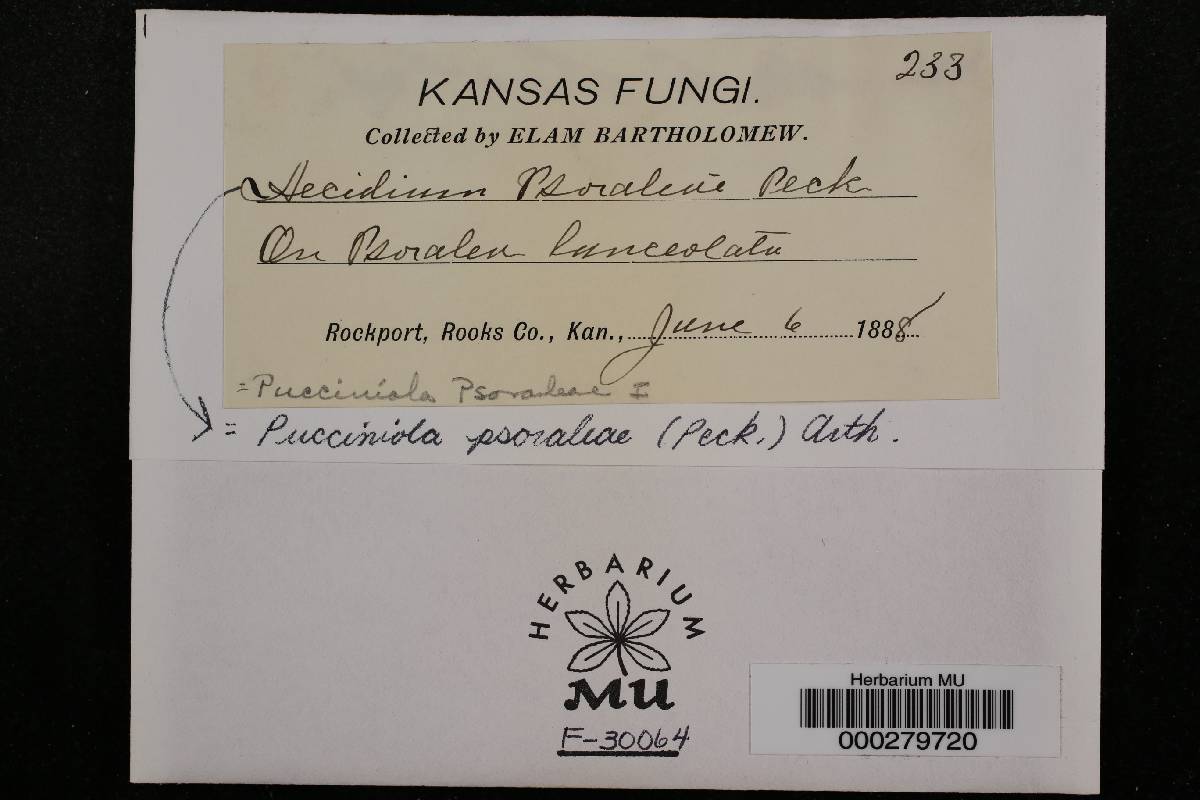 233
KANSAS FUNGI.
Collected by ELAM BARTHOLOMEW.
Aecidium Psoraleae Peck
On Psoralea lanceolata
Rockport, Rooks Co., Kan., June 6 1888
= Pucciniola Psoraleae I
= Pucciniola psoraleae (Peck.) Arth.
HERBARIUM
MU
F-30064
Herbarium MU
000279720